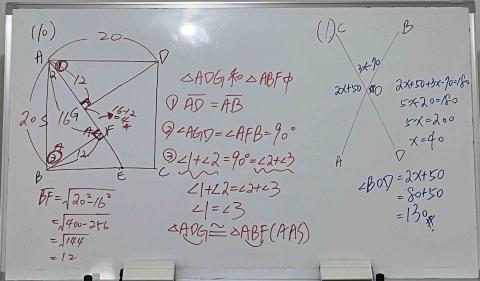 (10)
20
A
D
①
2
12
20
5
16
G
16-12
=4
F
②
12
B
E
C
BF=√20²-16²
=√400-256
=√144
=12
△ADG和△ABF中
① AD=AB
②∠AGD=∠AFB=90°
③∠1+∠2=90°=∠2+∠3
∠1+∠2=∠2+∠3
∠1=∠3
△ADG≅△ABF(AAS)
(1)
C
B
3x-70
2x+50
O
A
D
2x+50+3x-70=180
5x-20=180
5x=200
x=40
∠BOD=2x+50
=80+50
=130